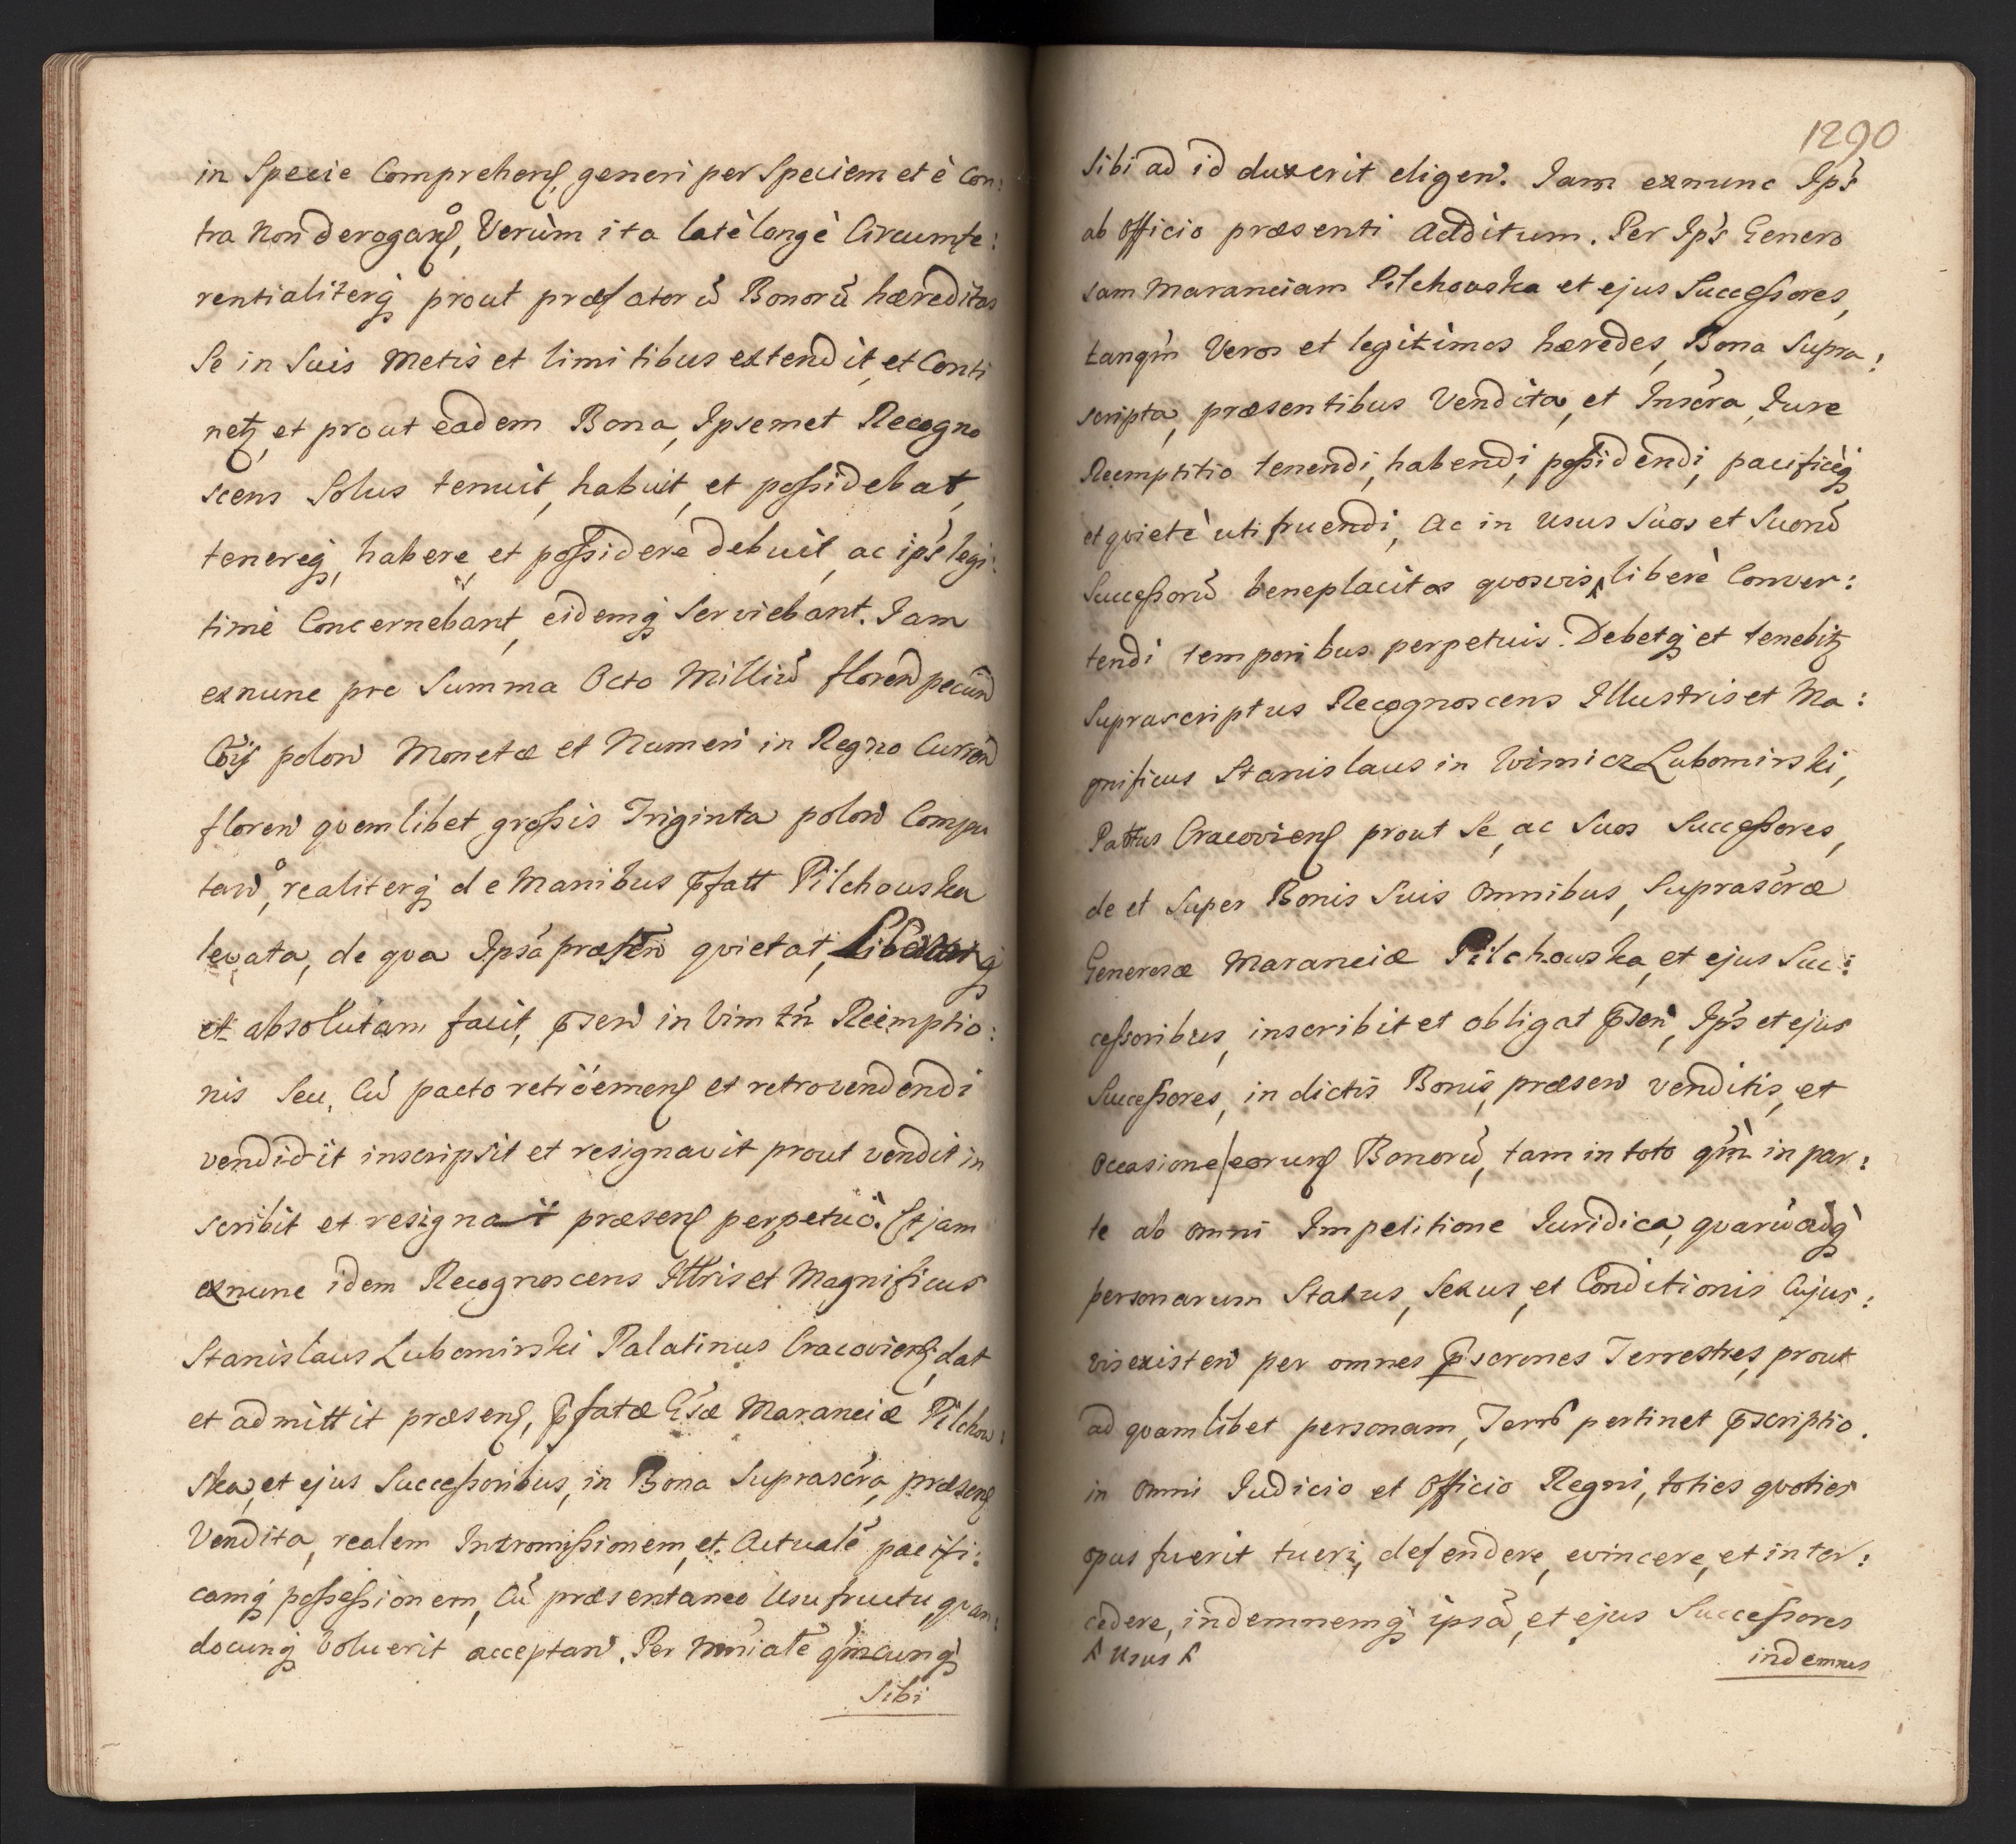 in Specie Comprehens generi per Speciem et è Con:
tra non derogans, Verùm ita latè longè Circumfe:
rentialiterq prout præfatorũ Bonorũ hæreditas
Se in Suis Metis et limitibus extendit, et Conti
netz et prout eadem Bona, Ipsemet Recogno
scens Solus tenuit, habuit, et possidebat,
tenereq, habere, et possidere debuit, ac ips legi:
timè Concernebant, eidemq Serviebant. Jam
exnunc pro Summa Octo Milliũ floren pecun
Cois polon Monetæ et Numeri in Regno Curren
floren qvemlibet grossis Triginta polon Compu
tan, realiterq de Manibus pfatt Pilchouska
levata, de qva Ipsa præsen qvietat,
et absolutam facit, psen in Vim tñ Reemptio:
nis Seu, Cũ pacto retròemens et retrovendendi
vendidit inscripsit et resignavit prout vendit in
scribit et resignat præsens perpetuò. Et jam
exnunc idem Recognoscens Illtris et Magnificus
Stanislaus Lubomirski Palatinus Cracoviens, dat
et admittit præsens, pfatæ Gsæ Maranciæ Pilchow:
ska, et ejus Successoribus, in Bona Suprascra, præsens
Vendita, realem Intromissionem, et Actualẽ pacifi:
camq possessionem, Cũ præsentaneo Usufructu qvan:
docunq Voluerit acceptan. Per Mnialẽ qmcunq
Sibi

1290
Sibi ad id duxerit eligen. Jam exnunc Ips
ab Officio præsenti Additum. Per Ips Genero
sam Maranciam Pilchouska et ejus Successores,
tanqm Veros et legitimos hæredes, Bona Supra:
scripta, præsentibus Vendita, et Inscra, Jure
Reemptitio tenendi, habendi, possidendi, pacificèq
et qvietè uti fruendi, Ac in Usus Suos et Suorũ
Successorũ beneplacitos qvosvis ^ liberè Conver:
tendi temporibus perpetuis. Debetq et tenebitz
Suprascriptus Recognoscens Illustris et Ma:
gnificus Stanislaus in Wisnicz Lubomirski,
Pattus Cracoviens prout Se, ac Suos Successores,
de et Super Bonis Suis Omnibus, Suprascræ
Generosæ Maranciæ Pilchowska, et ejus Suc:
cessoribus, inscribit et obligat psen, Ips et ejus
Successores, in dictis Bonis, præsen venditis, et
Occasione eorund Bonorũ, tam in toto qm in par:
te ab omni Impetitione Juridica, qvarũcũq
personarum Status, Sexus, et Conditionis Cujus:
vis existen per omnes pscrones Terrestres, prout
ad qvamlibet personam, Terrs pertinet pscriptio.
in Omni Judicio et Officio Regni, toties qvoties
opus fuerit tueri, defendere, evincere, et inter:
cedere, indemnemq ipsã, et ejus Successores
^ Usus ^
indemnes